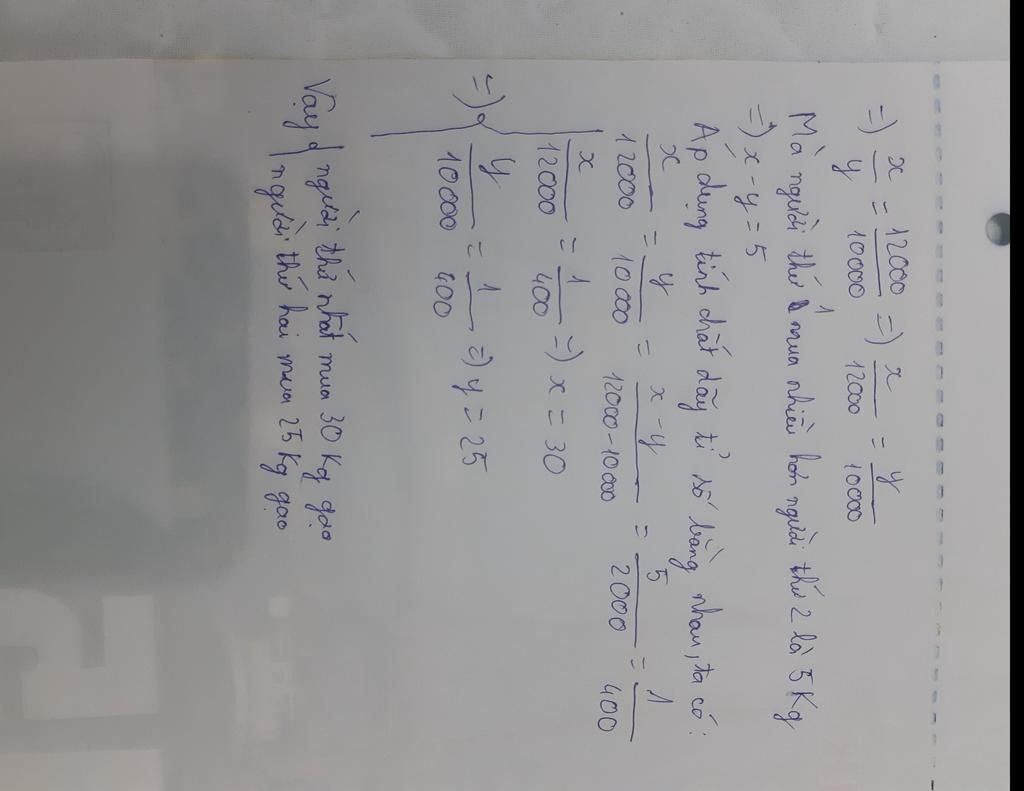 =) x/y = 12000/10000 =) x/12000 = y/10000
Mà người thứ 1 mua nhiều hơn người thứ 2 là 5 Kg
=) x - y = 5
Áp dụng tính chất dãy tỉ số bằng nhau, ta có:
x/12000 = y/10000 = x-y/12000-10000 = 5/2000 = 1/400
=) x/12000 = 1/400 =) x = 30
y/10000 = 1/400 =) y = 25
Vậy người thứ nhất mua 30 Kg gạo
người thứ hai mua 25 Kg gạo